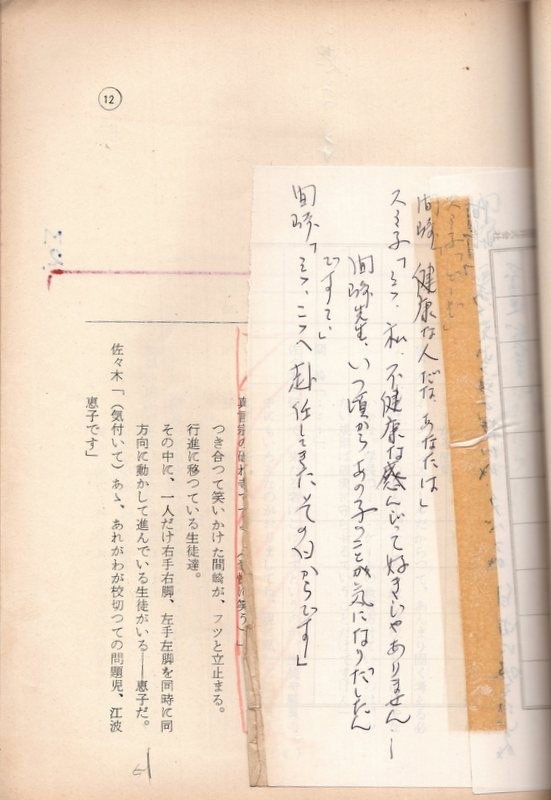 間崎「健康な人だな、あなたは」
スミ子「ええ、私、不健康な感じって好きじゃありません。―
間崎先生、いつ頃から、あの子のことが気になりだしたん
ですて」
間崎「ええ、ここへ赴任してきた、その日からです」
⑫
つき合つて笑いかけた間崎が、フツと立止まる。
行進に移つている生徒達。
その中に、一人だけ右手右脚、左手左脚を同時に同
方向に動かして進んでいる生徒がいる――恵子だ。
佐々木「(気付いて)あゝ、あれがわが校切つての問題児、江波
恵子です」